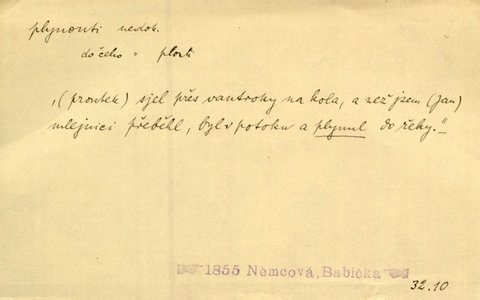 plynouti nedok.
do čeho = plouti
„(proutek) sjel přes vantroky na kola, a než jsem (Jan)
mlejnici přeběhl, byl v potoku a plynul do řeky.“
1855 Němcová, Babička
32.10